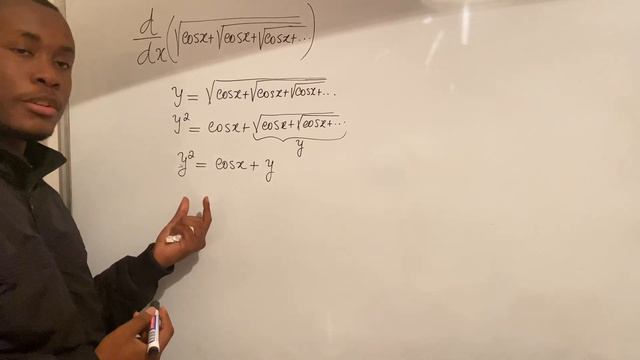 d/dx(√(cosx+√(cosx+√(cosx+...))))
y = √(cosx+√(cosx+√(cosx+...)))
y² = cosx + √(cosx+√(cosx+...))
y
y² = cosx + y